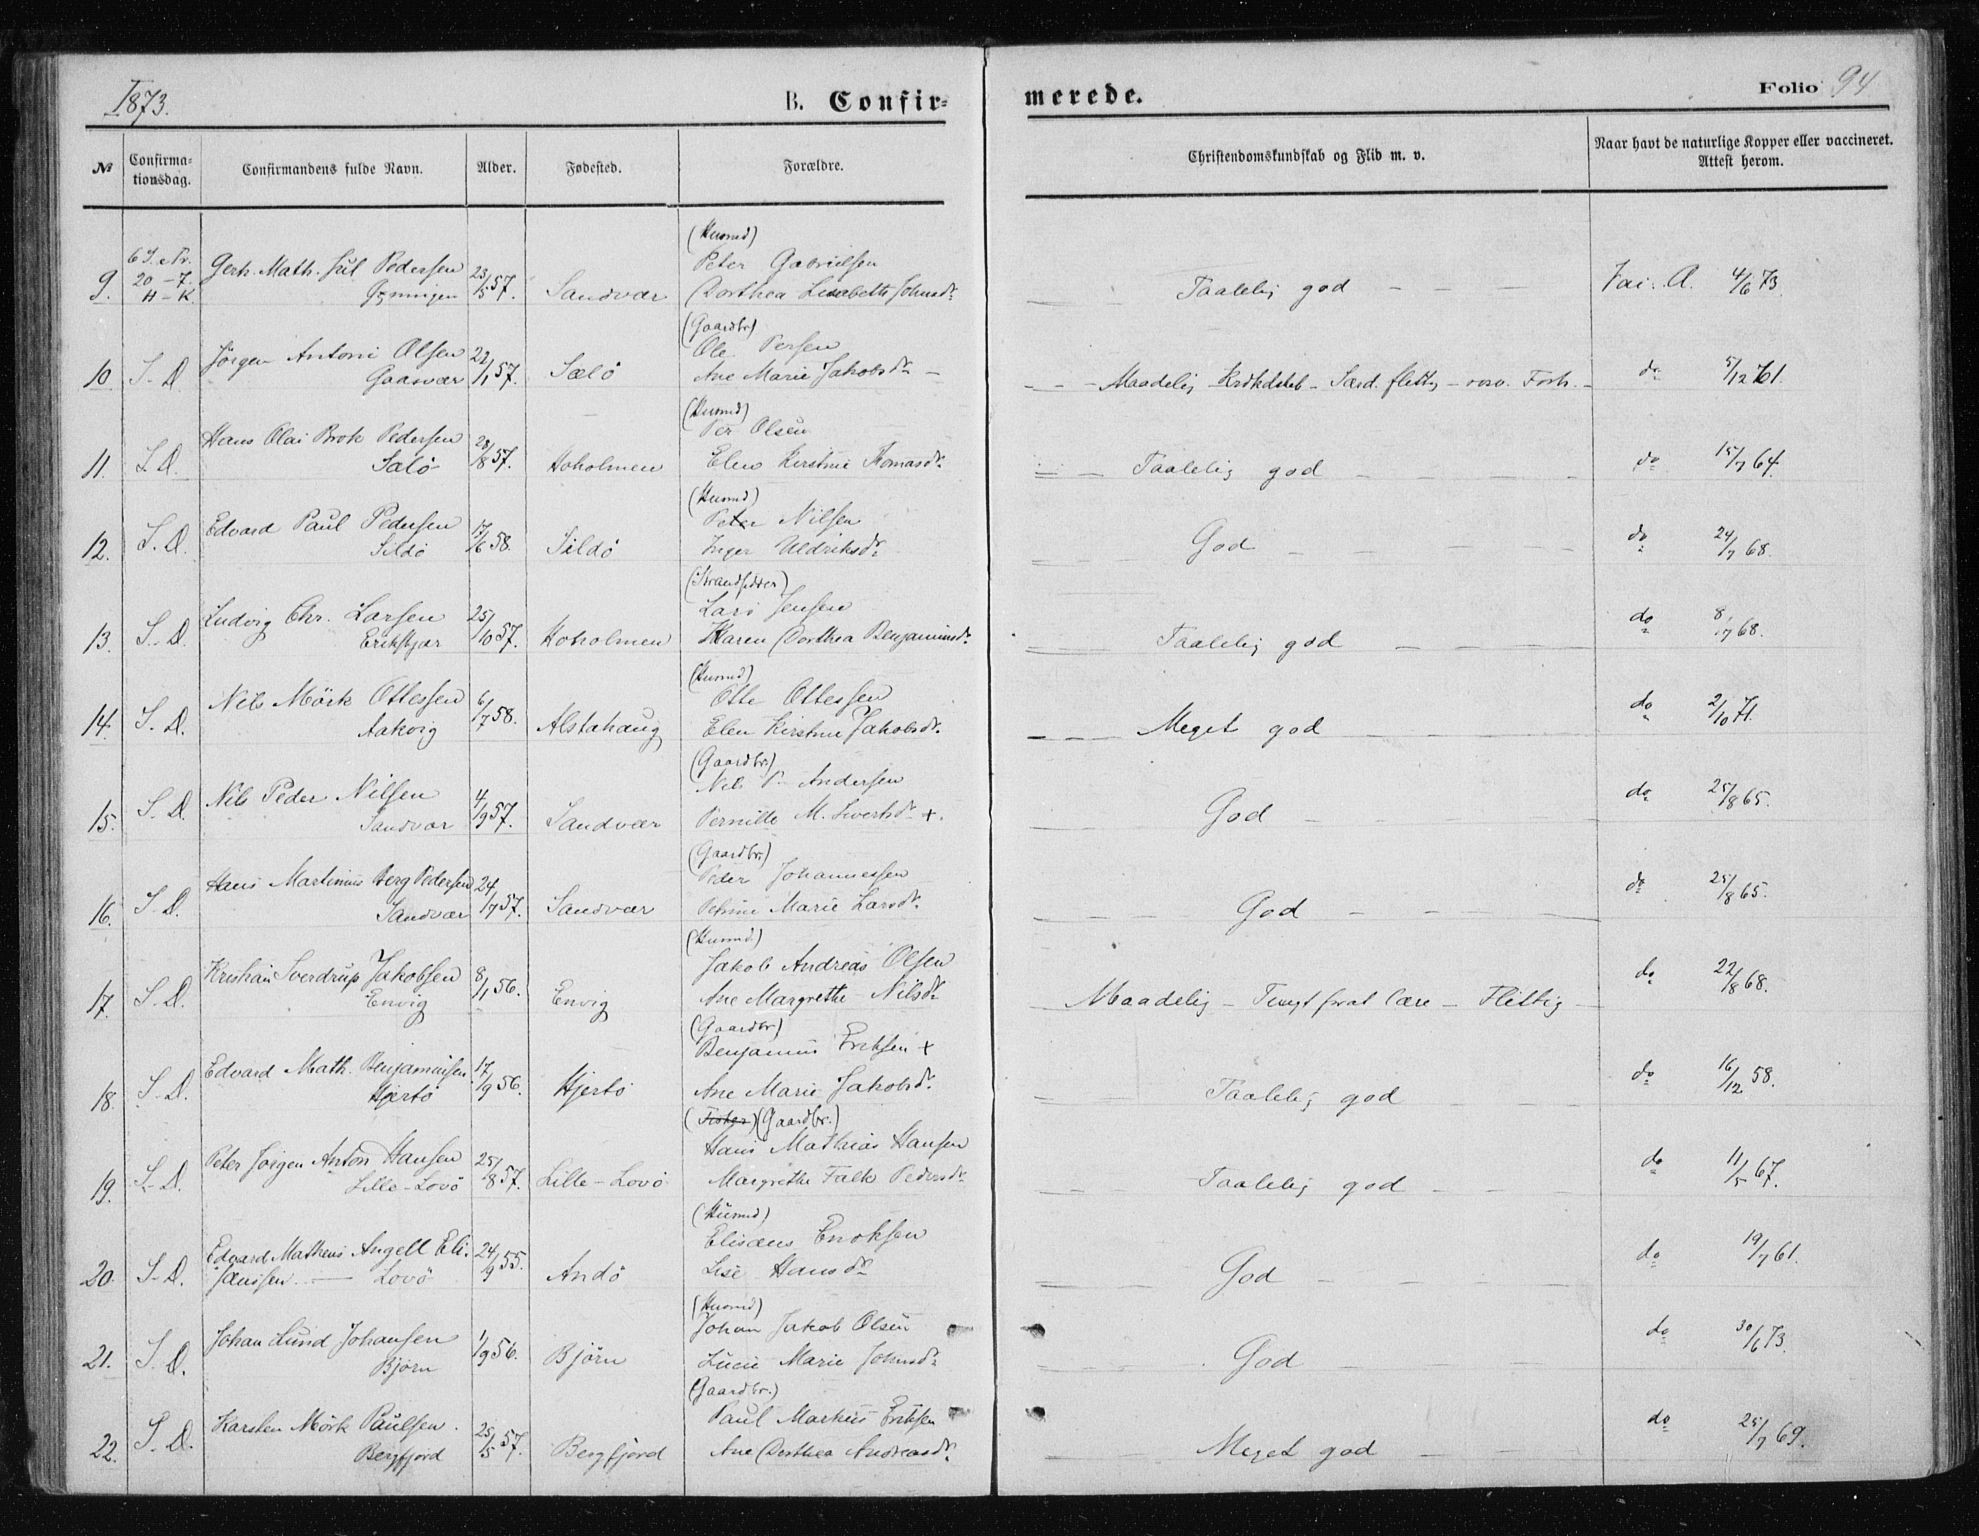 1873.
B. Confirmerede.
Folio 94
№ Confirmationsdag. Confirmandens fulde Navn. Alder. Fødested. Forældre. Christendomskundskab og Flid m. v. Naar havt de naturlige Kopper eller vaccineret. Attest herom.
(Husmd)
9. 6 S. e. Tr. 20-7. H-K. Gerh. Math. Jul Pedersen 23/5 57. Sandvær Peter Gabrielsen
Dorthea Lisabeth Johnsdr. Taalelig god Vac. A. 4/6 73.
(Gaardbr)
10. S. D. Jörgen Antoni Olsen 22/1 57. Sælö Ole Persen
Gaasvær Ane Marie Jakobsdr. Maadelig Krdkdskab - Særd. flittig - rosv. Forh. do 5/12 61.
(Husmd)
11. S. D. Hans Olai Brok Pedersen 28/8 57. Hoholmen Per Olsen
Sælö Elen Kirstine Thomasdr. Taalelig god do 15/7 64.
(Husmd)
12. S. D. Edvard Paul Pedersen 17/6 58. Sildö Peter Nilsen
Sildö Inger Uldriksdr. God do 24/7 68.
(Strandsidder)
13. S. D. Ludvig Chr. Larsen 25/10 57. Hoholmen Lars Jensen
Eriksskjær Karen Dorthea Benjaminsdr. Taalelig god do 8/7 68.
(Husmd)
14. S. D. Nils Mörk Ottessen 6/7 58. Alstahaug Otte Ottessen
Aakvig Elen Kirstine Jakobsdr. Meget god do 2/10 71.
(Gaardbr.)
15. S. D. Nils Peder Nilsen 4/9 57. Sandvær Nils P. Andersen
Sandvær Pernille M. Sivertsdr. +. God do 25/8 65.
(Gaardbr.)
16. S. D. Hans Martinus Berg Pedersen 24/7 57. Sandvær Peder Johannessen
Sandvær Petrine Marie Larsdr. God do 25/8 65.
(Husmd)
17. S. D. Kristian Sverdrup Jakobsen 8/1 56. Envig Jakob Andreas Olsen
Envig Ane Margrethe Nilsdr. Maadelig - Tungt for at lære - Flittig do 22/8 68.
(Gaardbr)
18. S. D. Edvard Math. Benjaminsen 17/9 56. Hjertö Benjamin Eriksen +
Hjertö Ane Marie Jakobsdr. Taalelig god do 16/12 58.
(Fisker) (Gaardbr.)
19. S. D. Peter Jörgen Anton Hansen 25/8 57. Lille-Lovö Hans Mathias Hansen
Lille-Lovö Margrethe Falk Pedersdr. Taalelig god do 11/5 67.
(Husmd)
20. S. D. Edvard Matheus Angell Eli- 24/9 55. Andö Elisæus Enoksen
sæussen. Lovö Lise Hansdr. God do 19/7 61.
(Husmd)
21. S. D. Johan Lund Johansen 1/9 56. Björn Johan Jakob Olsen
Björn Lucie Marie Johnsdr. God do 30/6 73.
(Gaardbr.)
22. S. D. Karsten Mörk Paulsen. 25/5 57. Bergfjord Paul Markus Eriksen
Bergfjord Ane Dorthea Andreasdr. Meget god do 25/7 69.